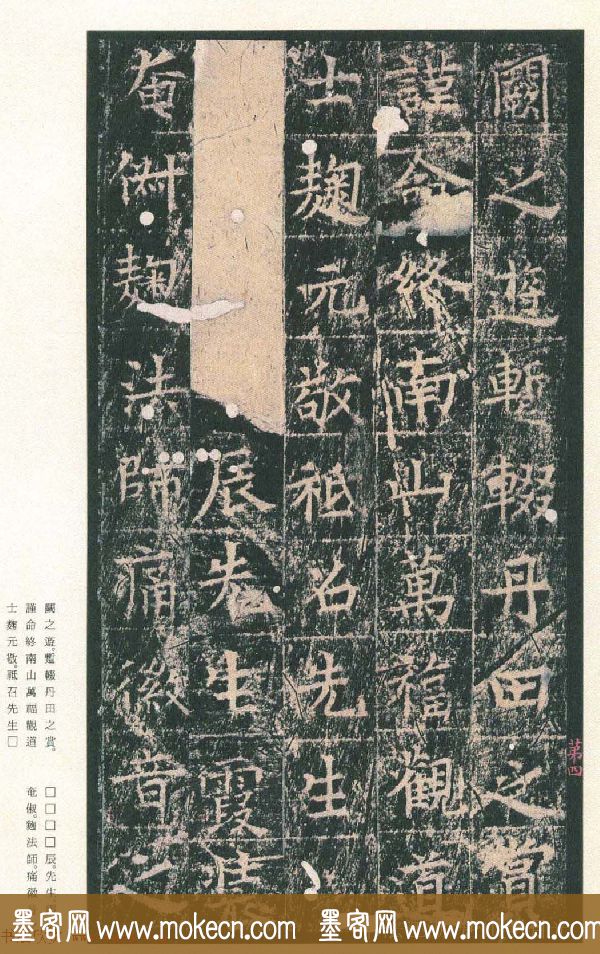 闕之遊暫輟丹田之賞
謹命終南山萬福觀道
士麹元敬祗召先生
辰先生霞
奄俶麹法師痛徽音之
第四
闕之遊。暫輟丹田之賞。
謹命終南山萬福觀道
士麹元敬。祗召先生□
□□□□辰。先生
奄俶。麹法師。痛
墨客网 www.mokecn.com 墨客网 www.mokecn.com